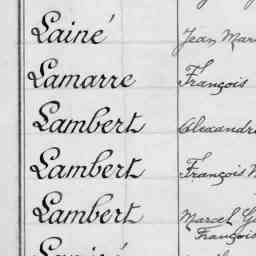 Lainé Jean
Lamarre François
Lambert Alexandre
Lambert François
Lambert Marcel
François